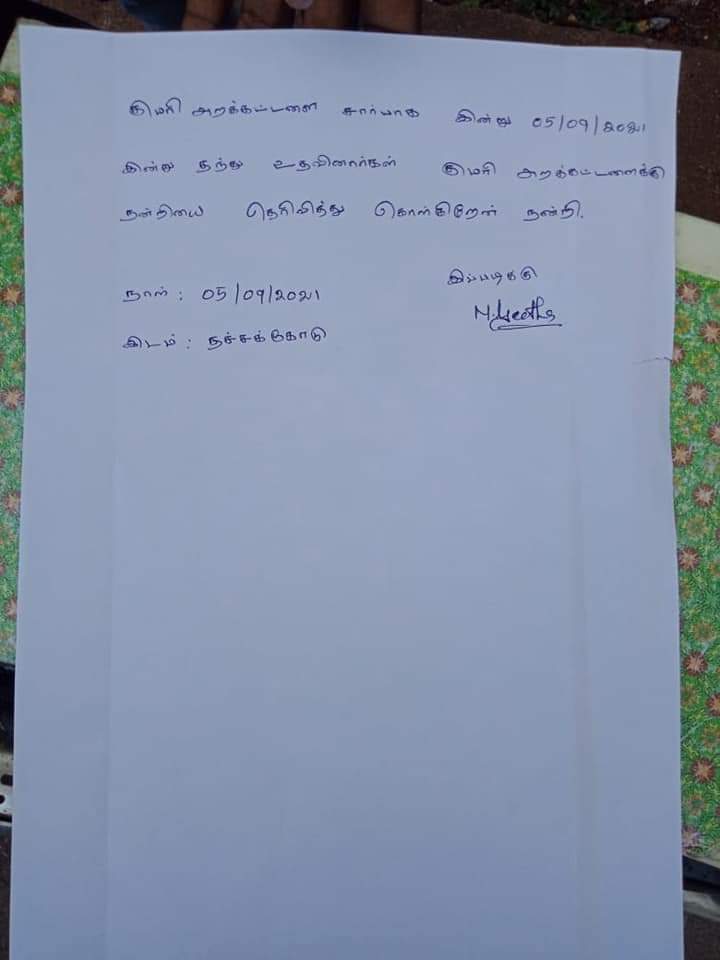 குமரி அறக்கட்டளை சார்பாக இன்று 05/09/2021
இன்று தந்து உதவினார்கள் குமரி அறக்கட்டளைக்கு
நன்றியை தெரிவித்து கொள்கிறேன் நன்றி.
இப்படிக்கு
நாள் : 05/09/2021
இடம் : நச்சக்கோடு